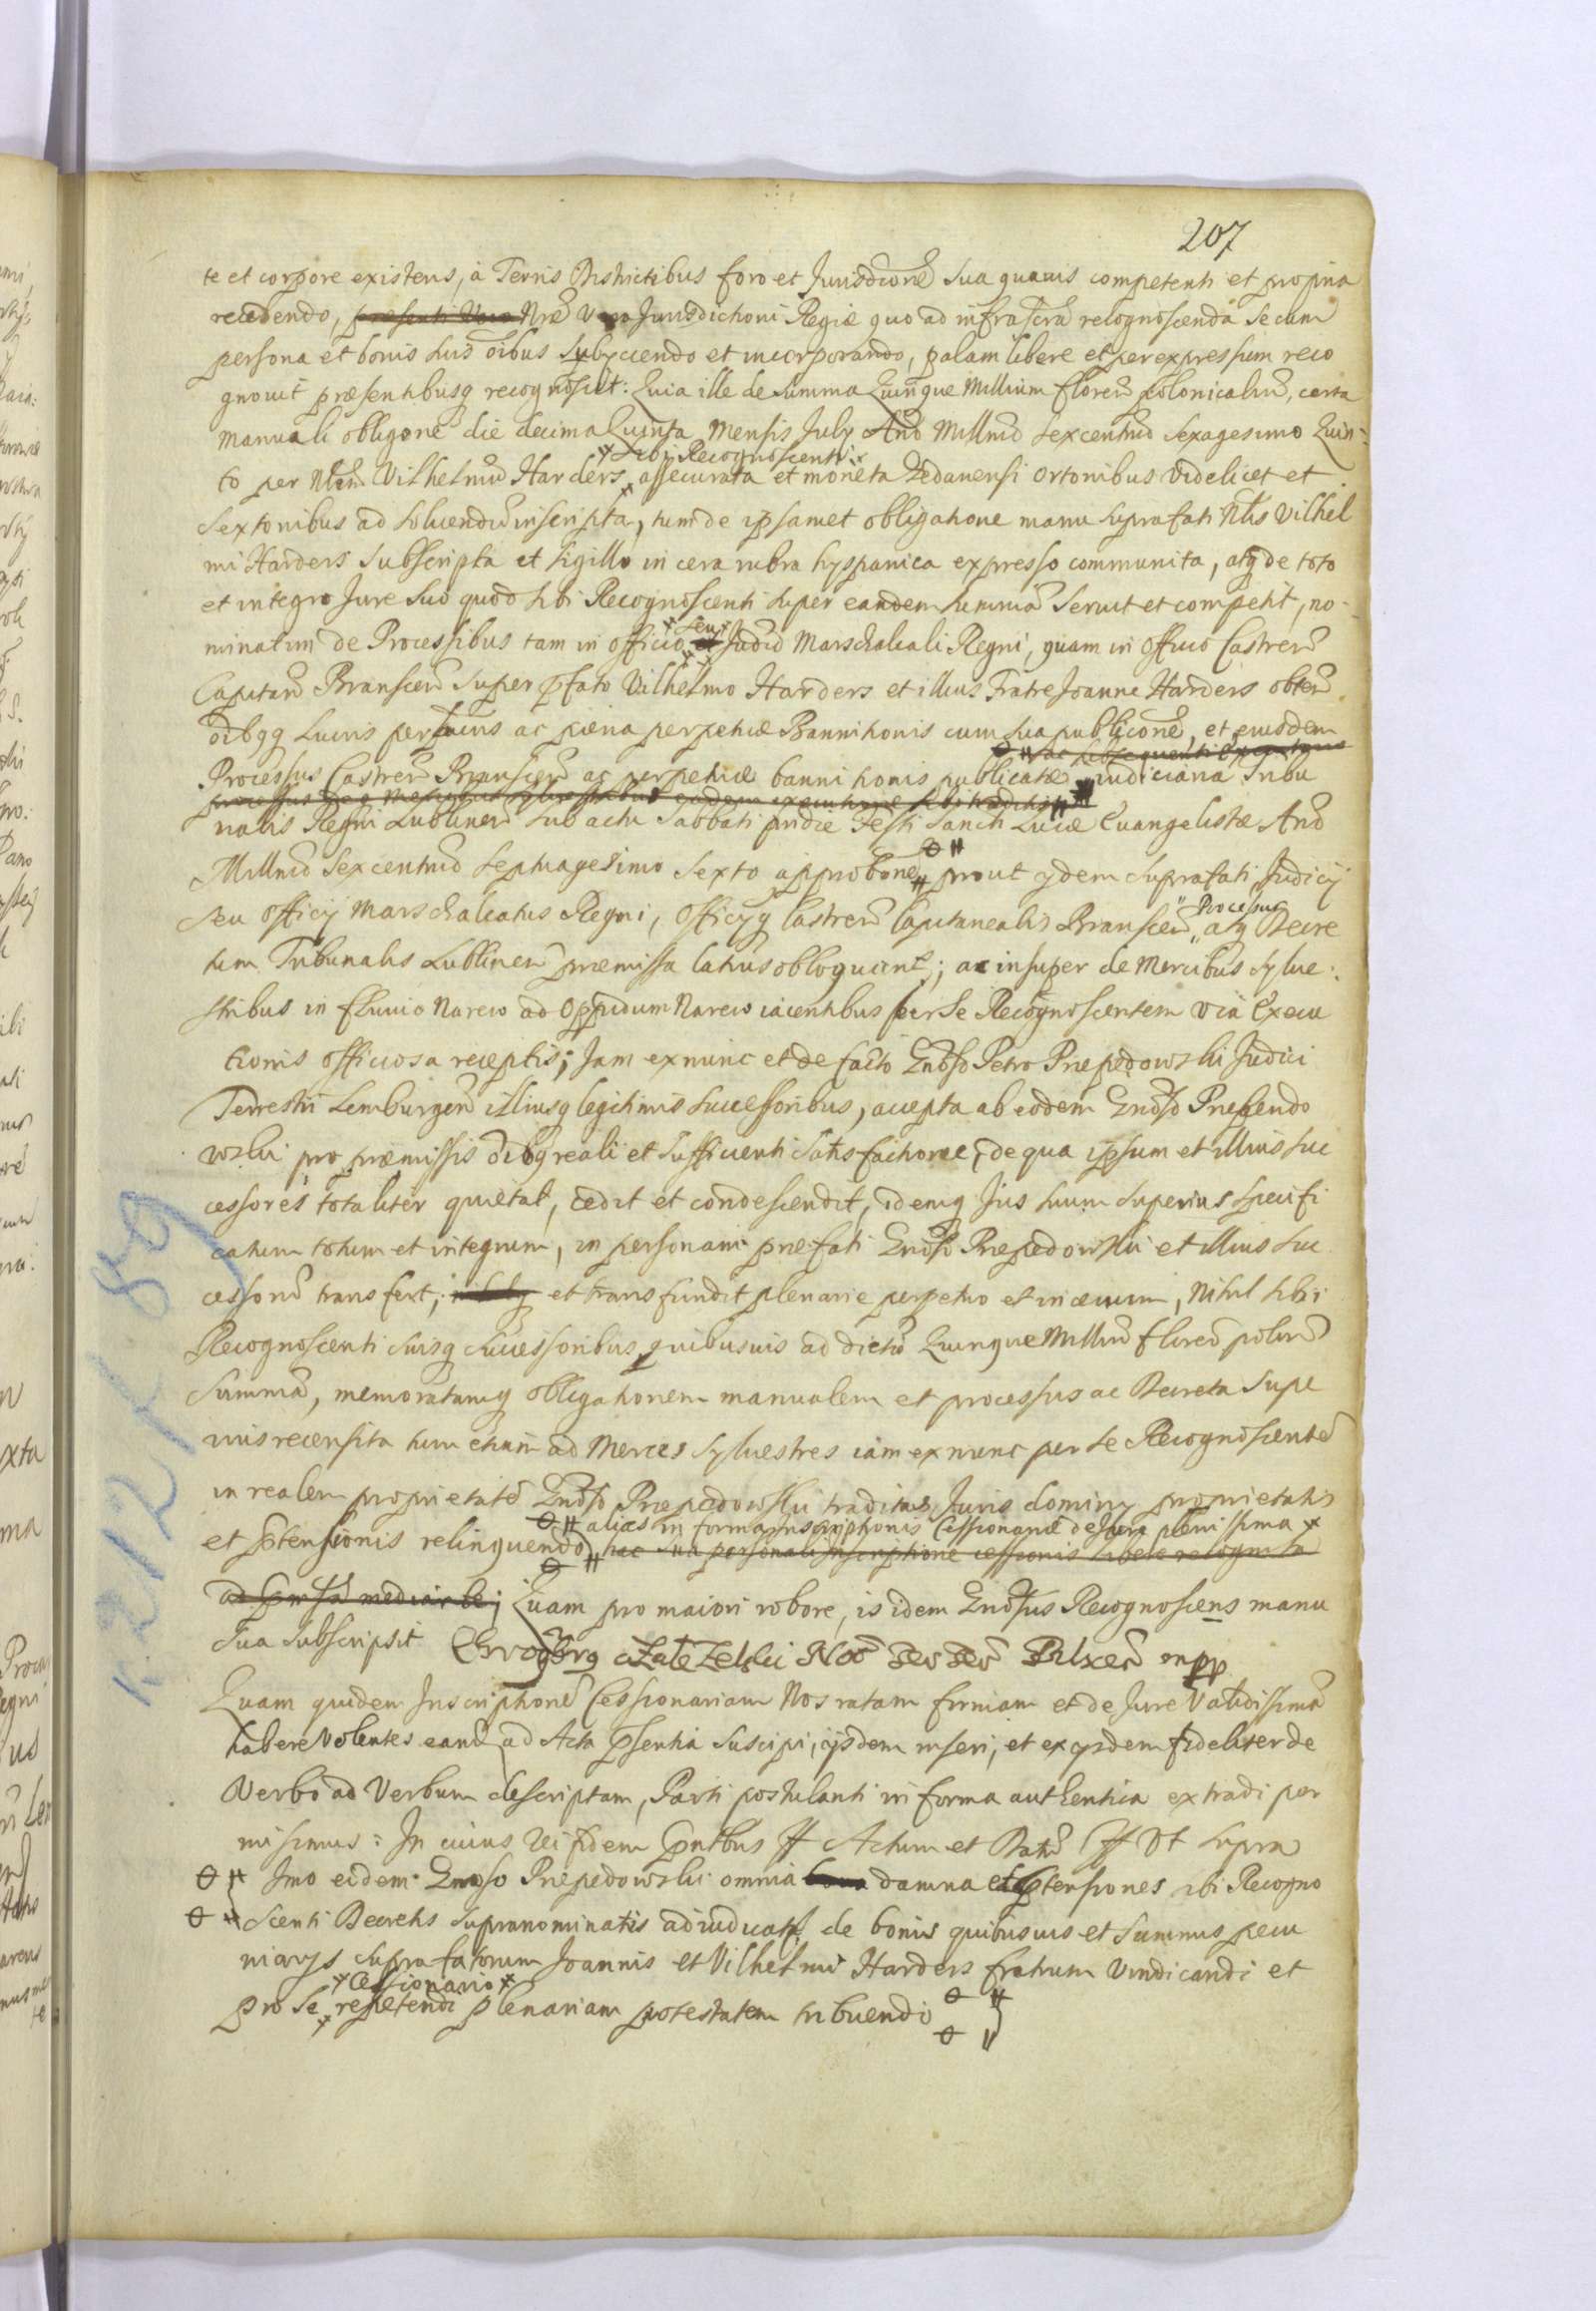 207
te et corpore existens, à Terris Districtibus foro et Jurisdicõne sua quauis competenti et propria
recedendo, præsenti Vero Nræ Vero Jurisdictioni Regiæ quo ad infrascra recognoscenda se cum
persona et bonis suis oĩbus subyciendo et incorporando, palam libere et per expressum reco
gnouit præsentibusq recognoscit: Quia ille de Summa Quinque Millium floren polonicaliũ, certa
manuali obligõne die decima Quinta Mensis July Anõ Millmo sexcentmo sexagesimo Quin-
x Sibi Recognoscenti x
to per Nlem Vilhelmũ Harders assecurata et moneta Gedanensi ortonibus Videlicet et
Sextonibus ad soluendũ inscripta, tum de ipsamet obligatione manu suprafati Nlis Vilhel
mi Harders Subscripta et sigillo in cera rubra hyspanica expresso communita, atq de toto
et integro Jure suo quod sibi Recognoscenti super eandem summã seruit et competit, no-
x seu x
minatim de Processibus tam in officio et Judicio Marschalcali Regni, quam in officio Castren
Capitan Branscen super pfato Vilhelmo Harders et illius Fratre Joanne Harders obten
oĩbqq Lucris perlucris ac pœna perpetuæ Bannitionis cum sua publicõne, et eiusdem
ac subsequenti
Processus Castren Branscen ac perpetuæ bannitionis publicatæ iudiciaria Tribu
processus de q Mercibus sylvestribus eadem executione sibi traditis
nalis Regni Lublinen sub actu Sabbati pridie Festi Sancti Lucæ Euangelistæ Anõ
Millmo Sexcentmo Septuagesimo Sexto approbõne prout ijdem suprafati Judicij
Processus
seu officij Marschalcatus Regni, Officyq Castren Capitanealis Branscen, atq Decre
tum Tribunalis Lublinen præmissa latius obloquunt; ac insuper de Mercibus Sylue-
stribus in fluuio Narew ad Oppidum Narew iacentibus per se Recognoscentem via Execu
tionis officiosa receptis; Jam exnunc et de facto Gnõso Petro Prependowski Judici
Terrestri Lemburgen illiusq legitimis successoribus, accepta ab eodem Gnõso Prebendo
wski pro præmissis oĩbq reali et sufficienti satisfactione, de qua ipsum et illius suc
cessores totaliter quietat, cedit et condescendit, idemq Jus suum superius specifi
catum totum et integrum, in personam præfati Gnõsi Prependowski et illius suc
cessorũ transfert, et transfundit plenarie perpetuo et in æuum, Nihil sibi
Recognoscenti suisq successoribus quibusuis ad dictã Quinque Milliũ floren polon
Summã, memoratamq obligationem manualem et processus ac Decreta supe
rius recensita tum etiam ad Merces Syluestres iam exnunc per se Recognoscentẽ
in realem proprietatẽ Gnõso Prependowski traditas, Juris dominy proprietatis
alias in forma Inscriptionis Cessionariæ de Jure plenissima x
et ptensionis relinquendo hac sua personali Inscriptione cessionis libere recognita
ad præssa mediante; Quam pro maiori robore, is idem Gnõsus Recognoscens manu
sua subscripsit mpp
Quam quidem Inscriptionẽ Cessionariam Nos ratam firmam et de Jure Validissimã
habere Volentes eand ad Acta pñsentia suscipi, ijsdem inseri, et ex ijsdem fideliter de
Verbo ad Verbum descriptam, Parti postulanti in forma authentica extradi per
misimus: In cuius Rei fidem pñtibus ff Actum et Datũ ff Vt supra
Imo eidem Gnoso Prependowski omnia bona damna et ptensiones sibi Recogno
scenti Decretis supranominatis adiudicat de bonis quibusuis et summis pecu
niarys suprafatorum Joannis et Vilhelmi Harders fratrum Vindicandi et
x Cessionario x
pro se repetendi plenariam potestatem tribuendo